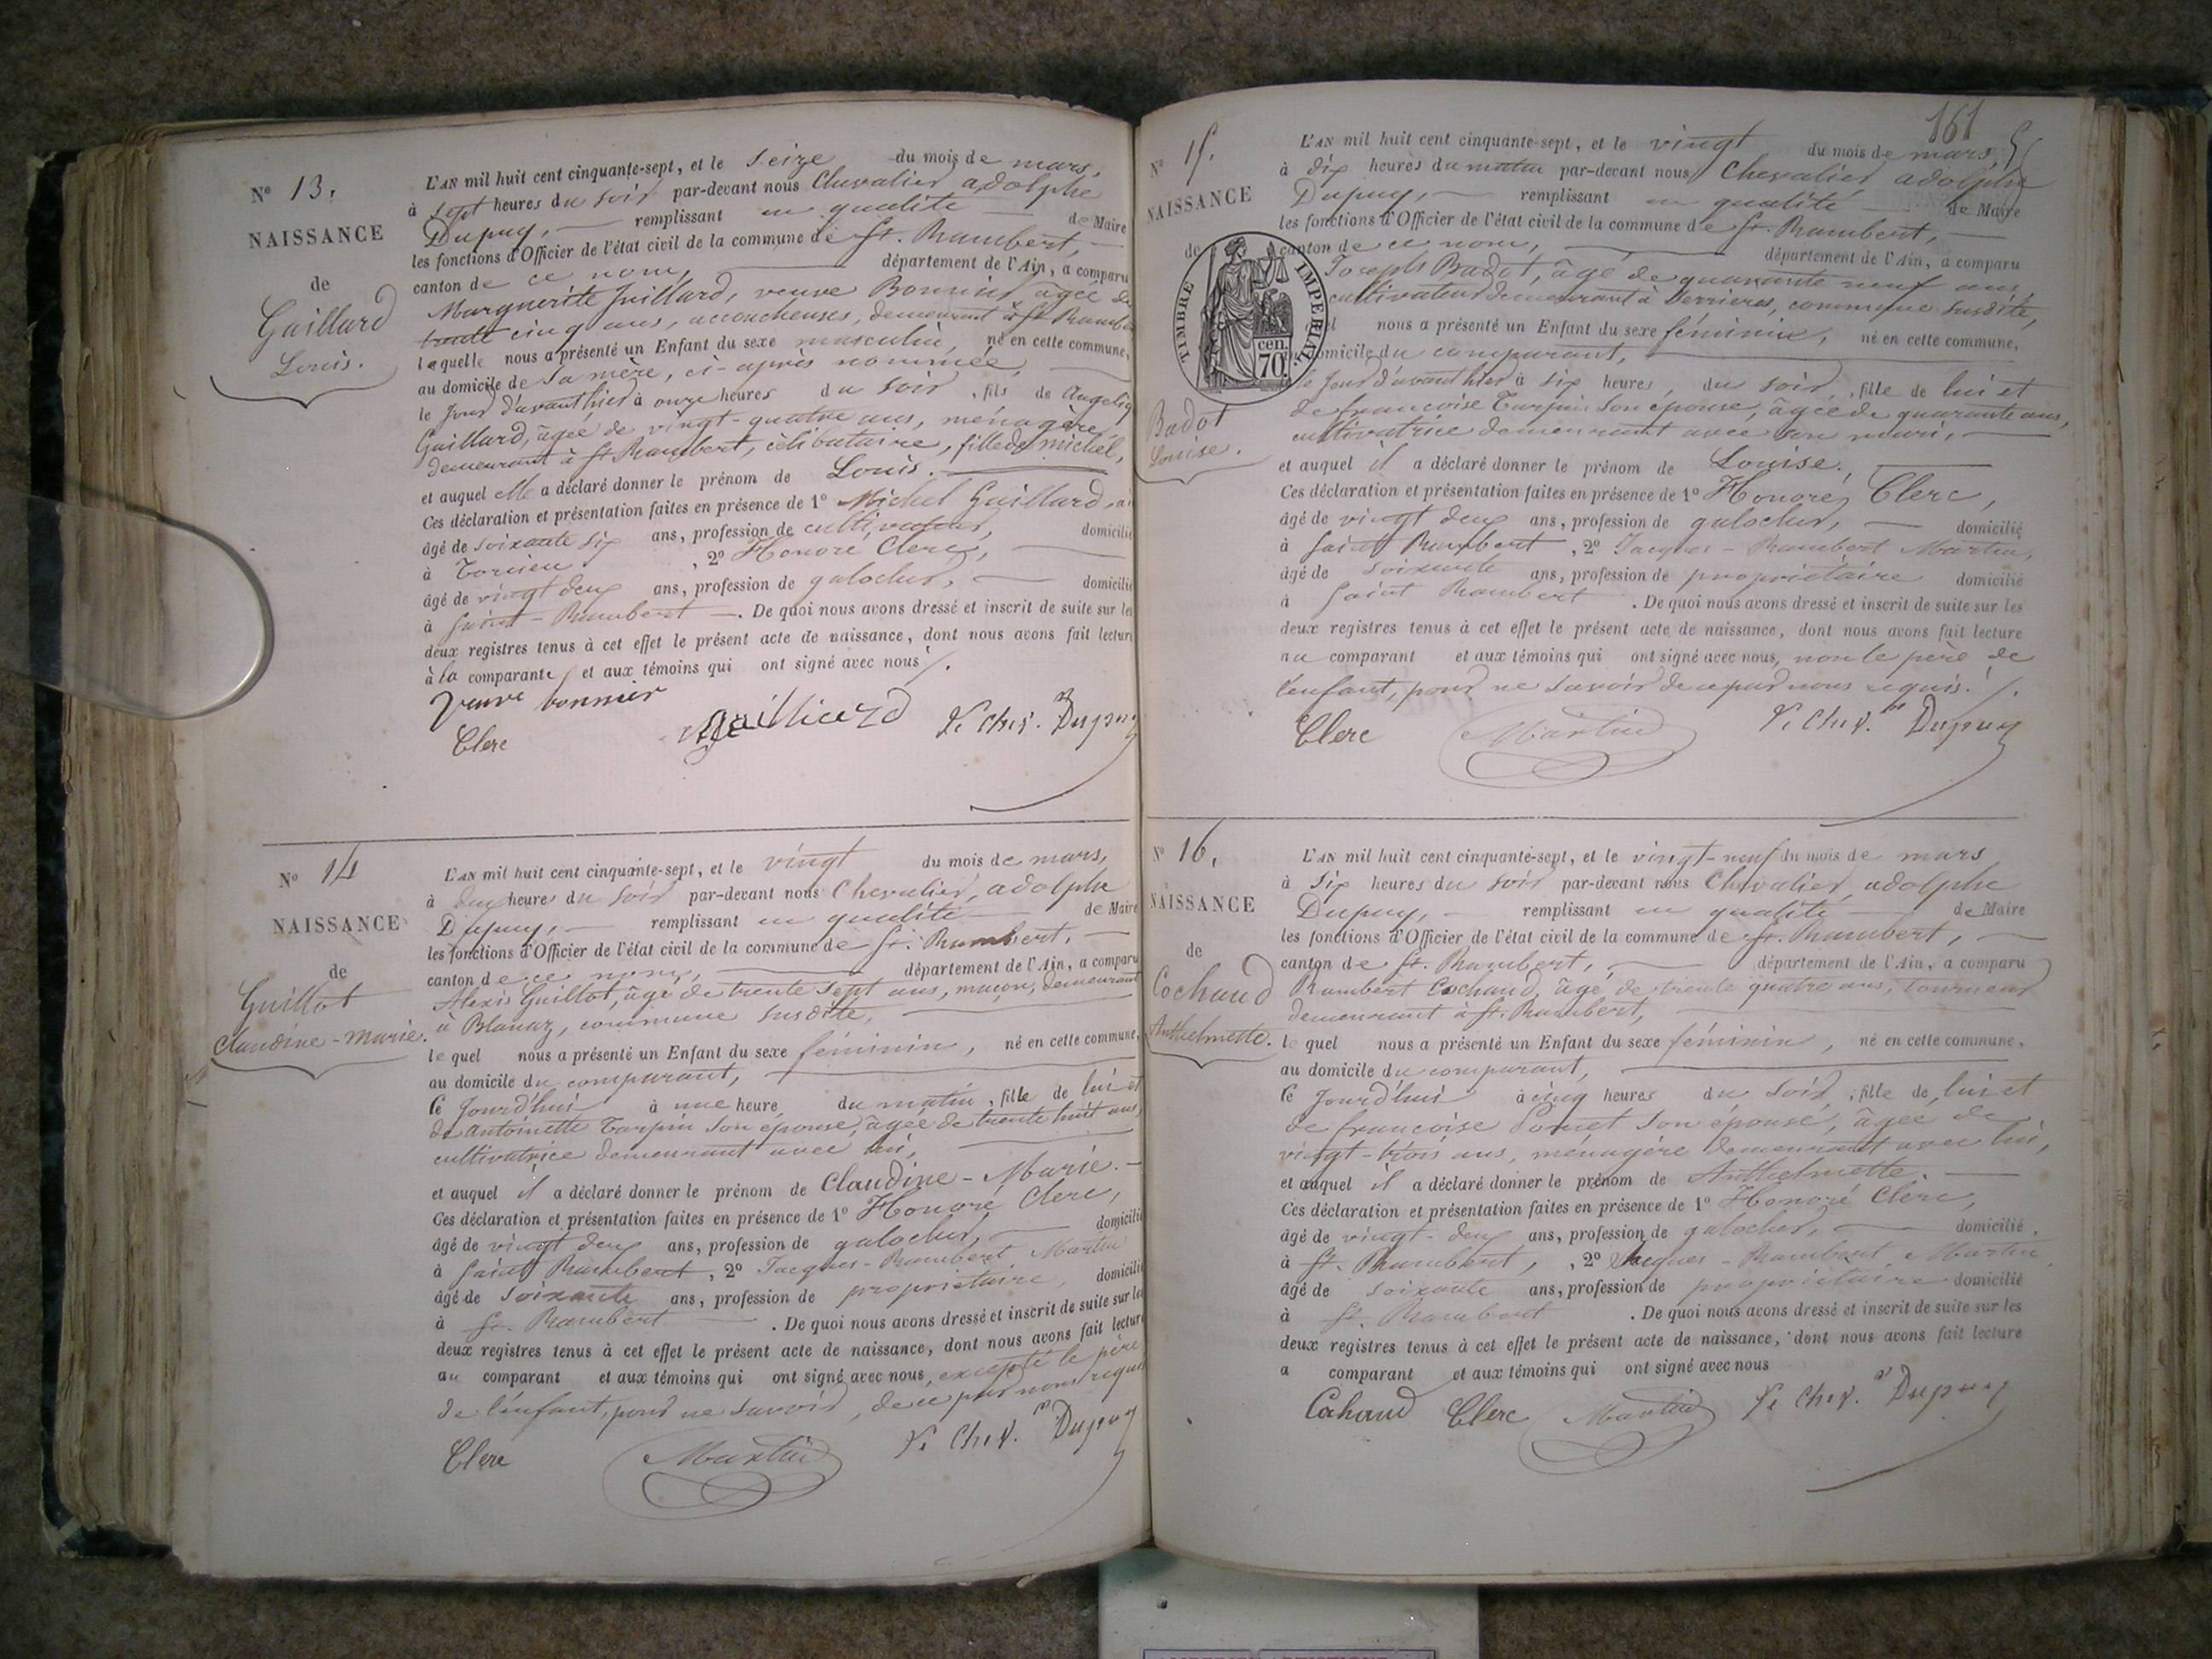 N° 13.
NAISSANCE
de
Gaillard
Louis.
L'AN mil huit cent cinquante-sept, et le seize du mois de mars,
à sept heures du soir par-devant nous Chevalier adolphe
Dupuy, remplissant en qualité de Maire
les fonctions d'Officier de l'état civil de la commune de St. Rambert,
canton de ce nom, département de l'Ain, a comparu
Marguerite Juillard, veuve Bonnier, âgée de
trente cinq ans, accoucheuse, demeurant à St Rambert
laquelle nous a présenté un Enfant du sexe masculin, né en cette commune,
au domicile de sa mère, ci-après nommée,
le jour d'avant hier à onze heures du soir, fils de Angeliq
Gaillard, âgée de vingt-quatre ans, ménagère,
demeurant à St Rambert, célibataire, fille de michel,
et auquel elle a déclaré donner le prénom de Louis.
Ces déclaration et présentation faites en présence de 1° Michel Gaillard,
âgé de soixante six ans, profession de cultivateur, domicilié
à Torcieu, 2° Honoré Clerc,
âgé de vingt deux ans, profession de galocher, domicilié
à Saint-Rambert. De quoi nous avons dressé et inscrit de suite sur les
deux registres tenus à cet effet le présent acte de naissance, dont nous avons fait lecture
à la comparante et aux témoins qui ont signé avec nous /.
Veuve bonnier
Clerc Gailliard Le Chev. Dupuy
N° 14
NAISSANCE
de
Guillot
Claudine-Marie.
L'AN mil huit cent cinquante-sept, et le vingt du mois de mars,
à deux heures du soir par-devant nous Chevalier, adolphe
Dupuy, remplissant en qualité de Maire
les fonctions d'Officier de l'état civil de la commune de St. Rambert,
canton de ce nom, département de l'Ain, a comparu
Alexis Guillot, âgé de trente sept ans, maçon, demeurant
à Blanaz, commune susdite,
lequel nous a présenté un Enfant du sexe féminin, né en cette commune,
au domicile du comparant,
Ce jourd'hui à une heure du matin, fille de lui et
de Antoinette Turpin son épouse, âgée de trente huit ans,
cultivatrice demeurant avec lui,
et auquel il a déclaré donner le prénom de Claudine-Marie.
Ces déclaration et présentation faites en présence de 1° Honoré Clerc,
âgé de vingt deux ans, profession de galocher, domicilié
à Saint Rambert, 2° Jacques-Rambert Martin
âgé de soixante ans, profession de propriétaire, domicilié
à St. Rambert. De quoi nous avons dressé et inscrit de suite sur les
deux registres tenus à cet effet le présent acte de naissance, dont nous avons fait lecture
au comparant et aux témoins qui ont signé avec nous, excepté le père
de l'enfant, pour ne savoir, de ce par nous requis
Clerc Martin Le Chev. Dupuy
161
N° 15.
NAISSANCE
de
TIMBRE IMPERIAL.
70 cen.
Badot
Louise.
L'AN mil huit cent cinquante-sept, et le vingt du mois de mars,
à dix heures du matin par-devant nous Chevalier adolphe
Dupuy, remplissant en qualité de Maire
les fonctions d'Officier de l'état civil de la commune de St. Rambert,
canton de ce nom, département de l'Ain, a comparu
Joseph Badot, âgé de quarante neuf ans,
cultivateur demeurant à Serrieres, commune susdite,
el nous a présenté un Enfant du sexe féminin, né en cette commune,
domicile du comparant,
le jour d'avant hier à six heures, du soir, fille de lui et
de francoise Turpin son épouse, âgée de quarante ans,
cultivatrice demeurant avec son mari,
et auquel il a déclaré donner le prénom de Louise.
Ces déclaration et présentation faites en présence de 1° Honoré Clerc,
âgé de vingt deux ans, profession de galocher, domicilié
à Saint Rambert, 2° Jacques-Rambert Martin,
âgé de soixante ans, profession de propriétaire domicilié
à Saint Rambert. De quoi nous avons dressé et inscrit de suite sur les
deux registres tenus à cet effet le présent acte de naissance, dont nous avons fait lecture
au comparant et aux témoins qui ont signé avec nous, non le père de
l'enfant, pour ne savoir de ce par nous requis. /.
Clerc Martin Le Chev. Dupuy
N° 16.
NAISSANCE
de
Cochaud
Anthelmette.
L'AN mil huit cent cinquante-sept, et le vingt-neuf du mois de mars
à six heures du soir par-devant nous Chevalier adolphe
Dupuy, remplissant en qualité de Maire
les fonctions d'Officier de l'état civil de la commune de St. Rambert,
canton de St. Rambert, département de l'Ain, a comparu
Rambert Cochaud, âgé de trente quatre ans, tourneur
demeurant à St. Rambert,
lequel nous a présenté un Enfant du sexe féminin, né en cette commune,
au domicile du comparant,
Ce jourd'hui à cinq heures du soir, fille de lui et
de francoise Ponet son épouse, âgée de
vingt-trois ans, ménagère demeurant avec lui,
et auquel il a déclaré donner le prénom de Anthelmette.
Ces déclaration et présentation faites en présence de 1° Honoré Clerc,
âgé de vingt-deux ans, profession de galocher, domicilié
à St. Rambert, 2° Jacques-Rambert Martin
âgé de soixante ans, profession de propriétaire domicilié
à St. Rambert. De quoi nous avons dressé et inscrit de suite sur les
deux registres tenus à cet effet le présent acte de naissance, dont nous avons fait lecture
a comparant et aux témoins qui ont signé avec nous
Cohaud Clerc Martin Le Chev. Dupuy